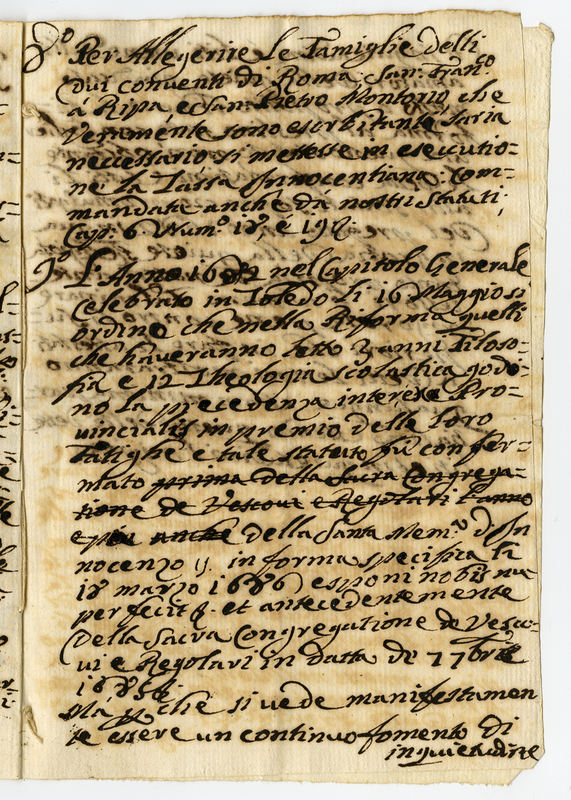 8º Per Allegerire Le Famiglie delli
dui conventi di Roma San: Franco
á Ripa e San Pietro Montorio, che
veramente sono esorbitante, saria
neccessario si mettesse in esecutio=
ne la Tassa Innocentiana: Com=
mandata anche dá nostri Statuti,
Cap: 6 Num.º 18, é 19
9º L'Anno 1682 nel Capitolo Generale
Celebrato in Toledo li 16 Maggio si
ordinò che nella Riforma quelli
che haveranno letto 3 anni Filoso=
fia e 12 Theologia scolastica godo=
no la precedenza inter Pro=
vinciales in premio delle loro
Fatighe e tale statuto fù confer=
mato prima della Sacra Congrega=
tione de Vescovi e Regolari l'anno
e più anche della Santa Mem.ª d'In
nocenzo 11. in forma specifica li
18 marzo 1686 esponi nobis nu=
per fecit &. et antecedentemente
della Sacra Congregatione de Vesco=
vi e Regolari in datta de 7 7bre
1685
Ma che si vede manifestamen
te essere un continuo fomento di
inquietudine